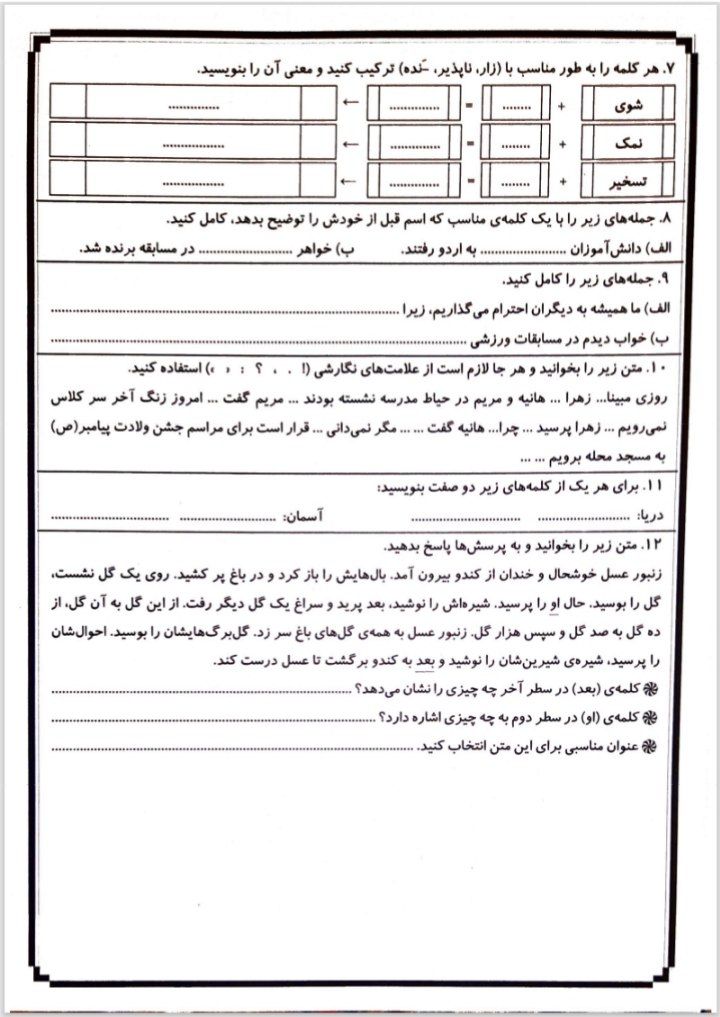 ۷. هر کلمه را به طور مناسب با (زار، ناپذیر، ـَ نده) ترکیب کنید و معنی آن را بنویسید.
شوی + ........ = .............. ← ..............
نمک + ........ = .............. ← .................
تسخیر + ........ = .............. ← .................
۸. جمله‌های زیر را با یک کلمه‌ی مناسب که اسم قبل از خودش را توضیح بدهد، کامل کنید.
الف) دانش‌آموزان ........................ به اردو رفتند. ب) خواهر .......................... در مسابقه برنده شد.
۹. جمله‌های زیر را کامل کنید.
الف) ما همیشه به دیگران احترام می‌گذاریم، زیرا ................................................................
ب) خواب دیدم در مسابقات ورزشی ................................................................
۱۰. متن زیر را بخوانید و هر جا لازم است از علامت‌های نگارشی (! . ، ؟ : « ») استفاده کنید.
روزی مبینا... زهرا ... هانیه و مریم در حیاط مدرسه نشسته بودند ... مریم گفت ... امروز زنگ آخر سر کلاس
نمی‌رویم ... زهرا پرسید ... چرا... هانیه گفت ... ... مگر نمی‌دانی ... قرار است برای مراسم جشن ولادت پیامبر(ص)
به مسجد محله برویم ... ...
۱۱. برای هر یک از کلمه‌های زیر دو صفت بنویسید:
دریا: .......................... .............................. آسمان: .......................... ................................
۱۲. متن زیر را بخوانید و به پرسش‌ها پاسخ بدهید.
زنبور عسل خوشحال و خندان از کندو بیرون آمد. بال‌هایش را باز کرد و در باغ پر کشید. روی یک گل نشست،
گل را بوسید. حال او را پرسید. شیره‌اش را نوشید، بعد پرید و سراغ یک گل دیگر رفت. از این گل به آن گل، از
ده گل به صد گل و سپس هزار گل. زنبور عسل به همه‌ی گل‌های باغ سر زد. گل‌برگ‌هایشان را بوسید. احوال‌شان
را پرسید، شیره‌ی شیرین‌شان را نوشید و بعد به کندو برگشت تا عسل درست کند.
کلمه‌ی (بعد) در سطر آخر چه چیزی را نشان می‌دهد؟ ................................................................
کلمه‌ی (او) در سطر دوم به چه چیزی اشاره دارد؟ ................................................................
عنوان مناسبی برای این متن انتخاب کنید. ................................................................